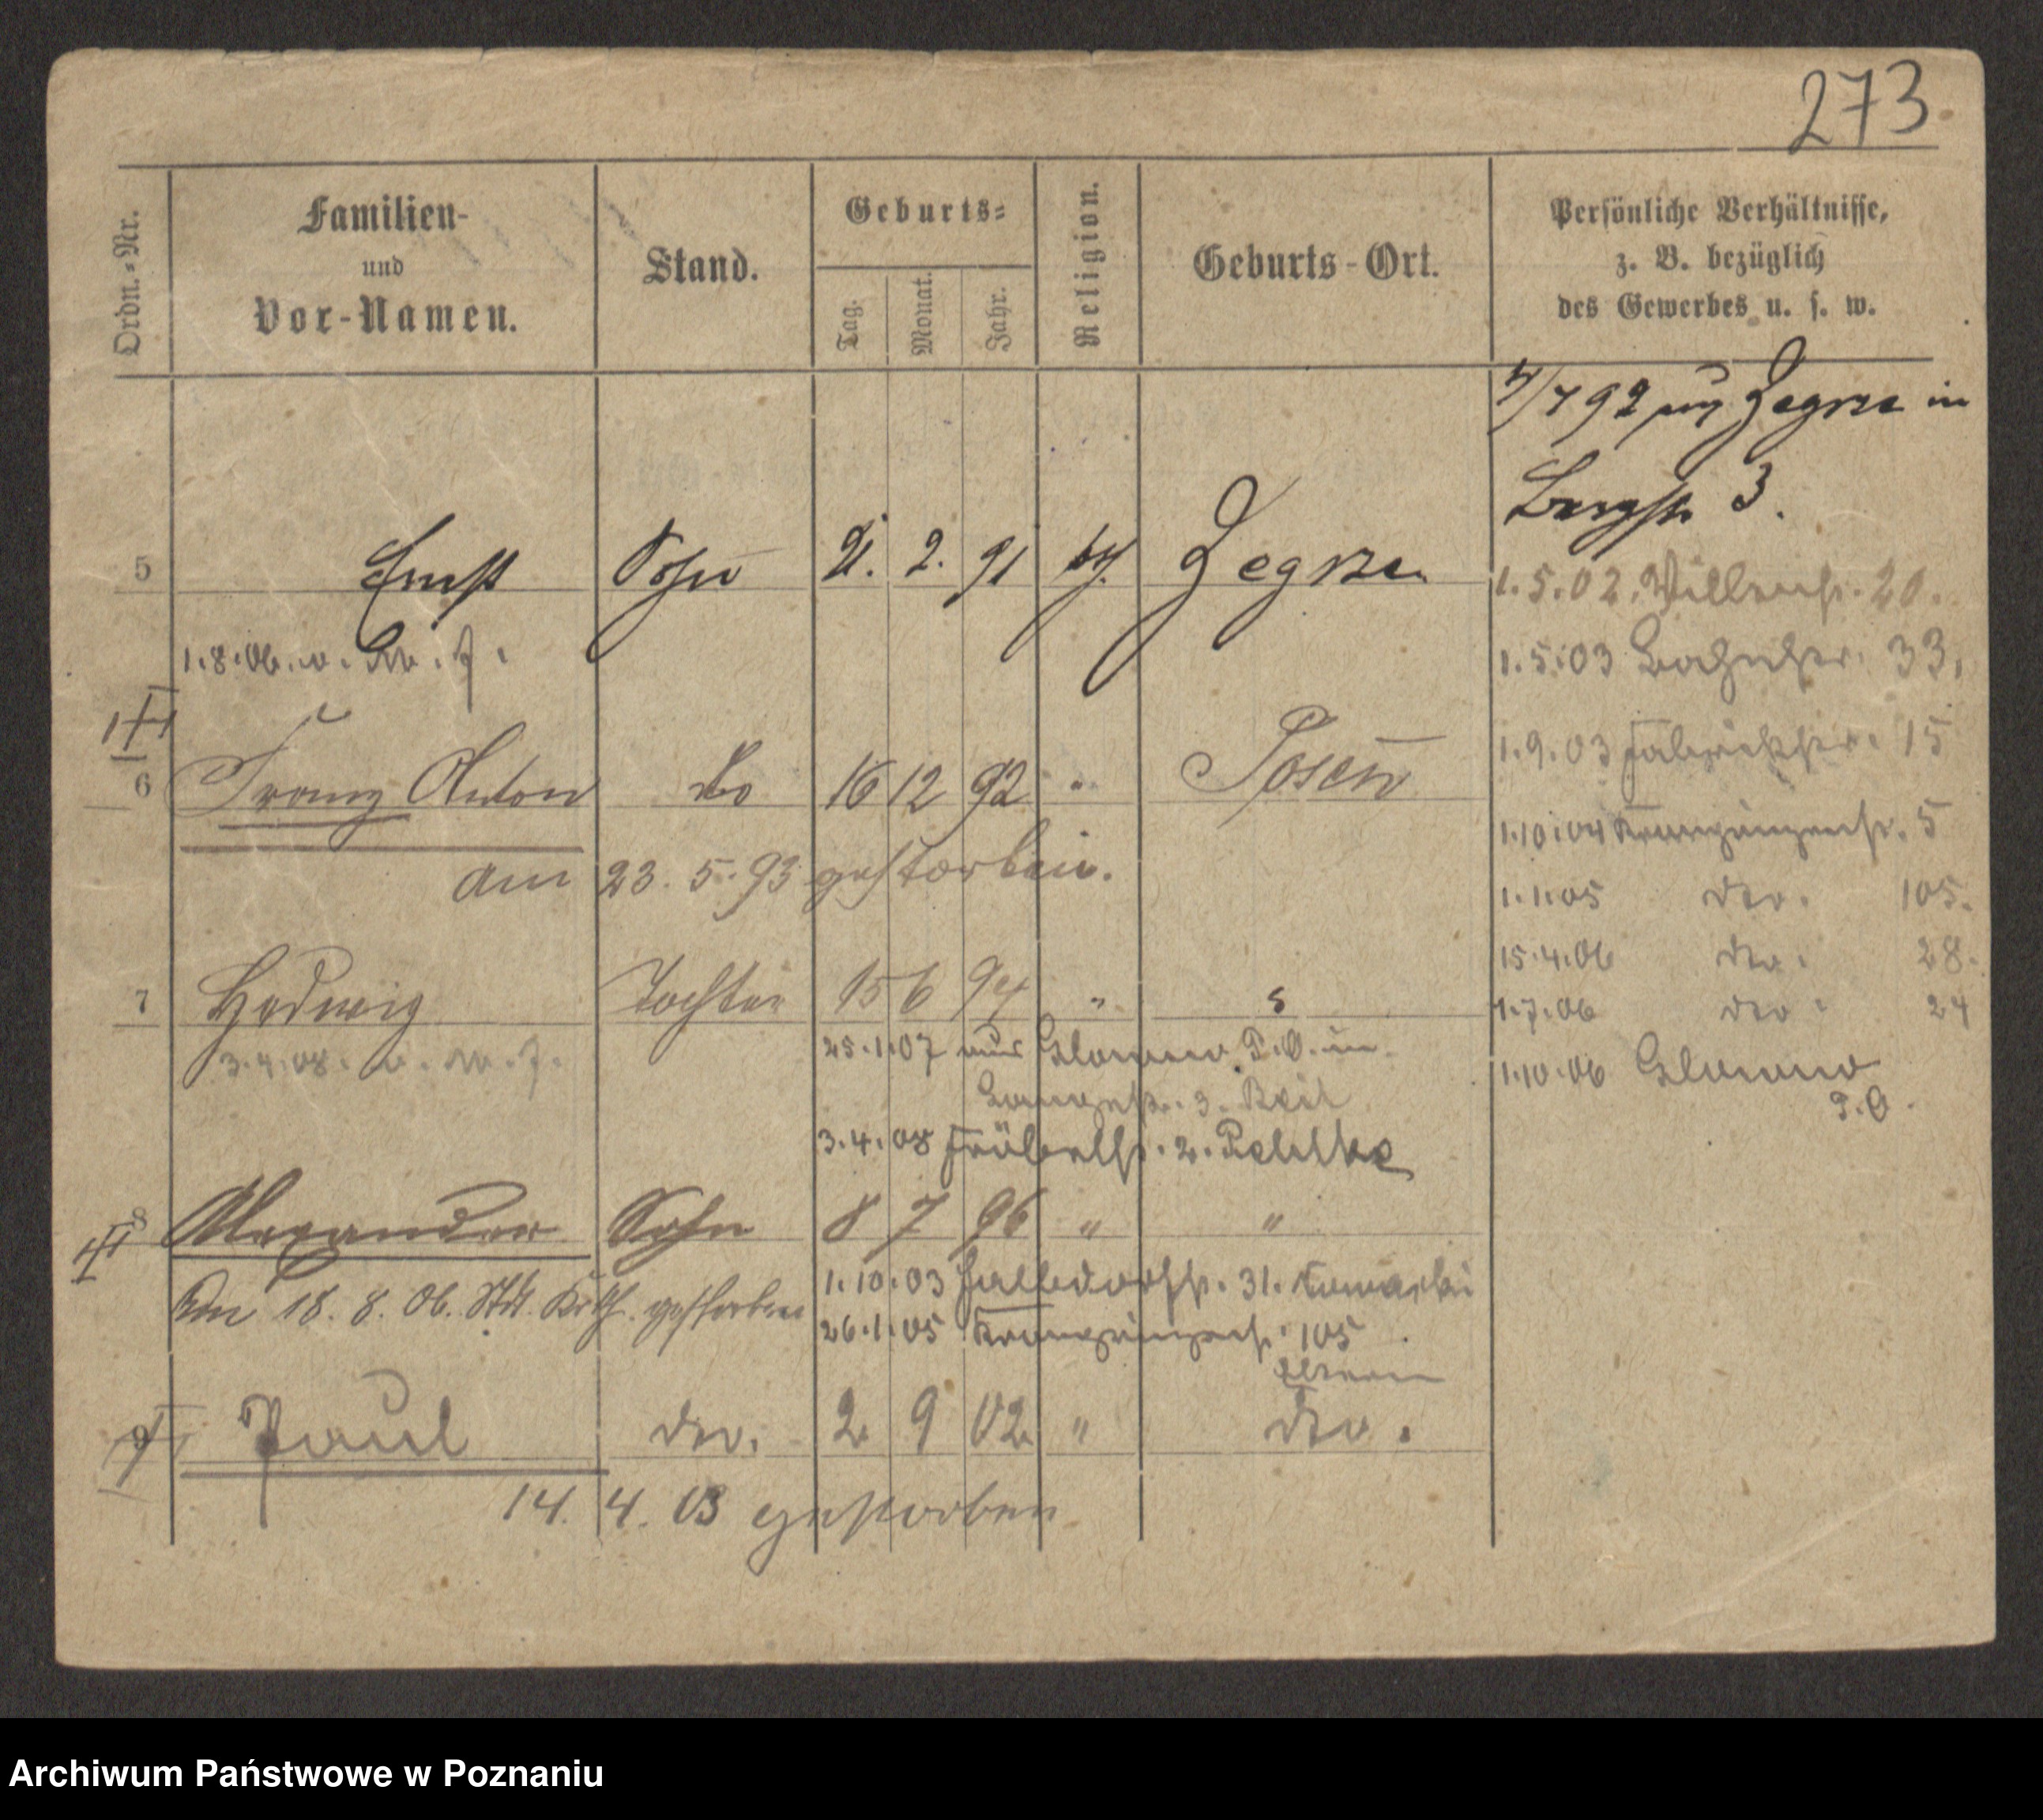 273
Ordn.-Nr.
Familien-
und
Vor-Namen.
Stand.
Geburts-
Tag.
Monat.
Jahr.
Religion.
Geburts-Ort.
Persönliche Verhältnisse,
z. B. bezüglich
des Gewerbes u. s. w.
92 Zegrze in
Bergstr 3.
5 Ernst Sohn 21. 2. 91 Zegrze
1.8.06. v. M. f.
1.5.02.  20.
1.5.03 Bahnstr. 33.
1.9.03 Fabrikstr. 15
1.10.04 Kronprinzenstr. 5
1.1.05 dto. 105.
15.4.06 dto. 28.
1.7.06 dto. 24
1.10.06 Glowno
P.O.
6 Franz Anton do 16 12 92 " Posen
am 23. 5. 93 gestorben.
7 Hedwig Tochter 15 6 94 "
3.4.08. v. M. f.
25.1.07 aus Glowno P.O. in
3.
3.4.08 Fröbelstr. 2.
8 Alexander Sohn 8 7 96 " "
Am 18. 8. 06. gestorben
1.10.03 31.
26.1.05 Kronprinzenstr. 105
Eltern
9 Paul dto. 2 9 02 " dto.
14. 4. 03 gestorben
Archiwum Państwowe w Poznaniu